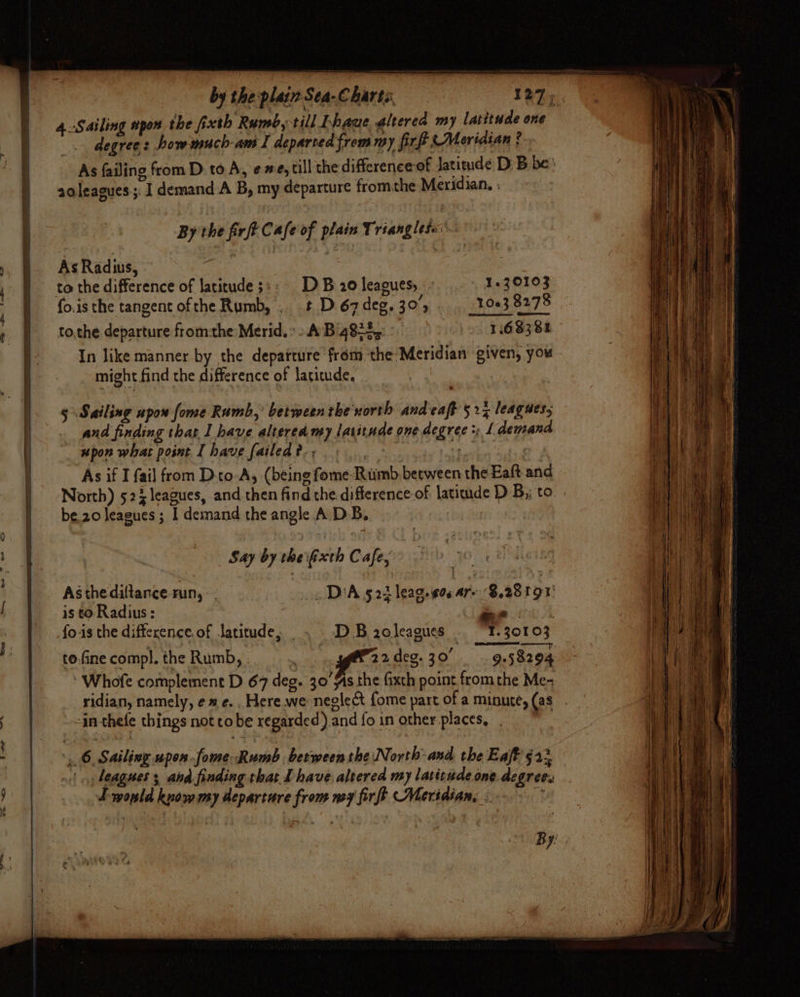 by the plain Sea-Charts. 127
4 Sailing upon the ſixth Rumb, till I have altered my latitude one
degree: how much am I departed from my firſt Meridian?
As ſailing from D to A, ene, till the difference of latitude D B be
20 leagues; I demand A B, my departure from the Meridian.
By the firſt Caſe of plain Triangles.
As Radius,
to the difference of latitude; D B 20 leagues, 1.30103
ſo is the tangent of the Rumb, t D 67 deg. 30', 10.38278
to the departure from the Merid. A B 48 1.68381
In like manner by the departure from the Meridian given, you
might find the difference of latitude.
5 Sailing upon ſome Rumb, between the north and eaſt 52¼ leagues,
and finding that I have altered my latitude one degree; I demand
upon what point I have ſailed?
As if I ſail from D to A, (being ſome Rumb between the Eaſt and
North) 52¼ leagues, and then find the difference of latitude D B, to
be 20 leagues; I demand the angle A D B.
Say by the ſixth Caſe,
As the diſtance run, D A 52¼ leag. co. ar. 8.28191
is to Radius:
ſo is the difference of latitude, D B 20 leagues 1.30103
to ſine compl. the Rumb, 22 deg. 30' 9.58294
Whoſe complement D 67 deg. 30' is the ſixth point from the Me-
ridian, namely, ene. Here we neglect ſome part of a minute, (as
in theſe things not to be regarded) and ſo in other places.
6 Sailing upon ſome Rumb between the North and the Eaſt 52¼
leagues; and finding that I have altered my latitude one degree,
I would know my departure from my firſt Meridian.
By